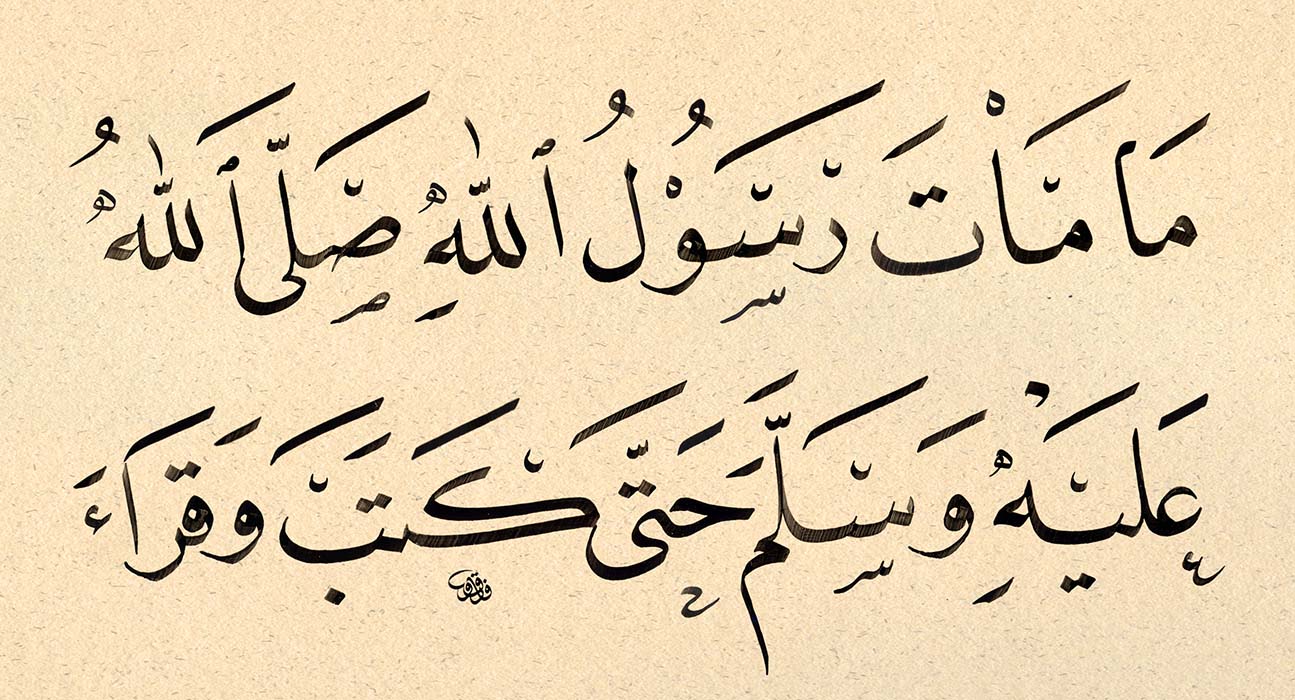 مَا مَاتَ رَسُوْلُ ٱللّٰهِ صَلَّى ٱللّٰهُ
عَلَيْهِ وَسَلَّمَ حَتّٰى كَتَبَ وَقَرَاءَ